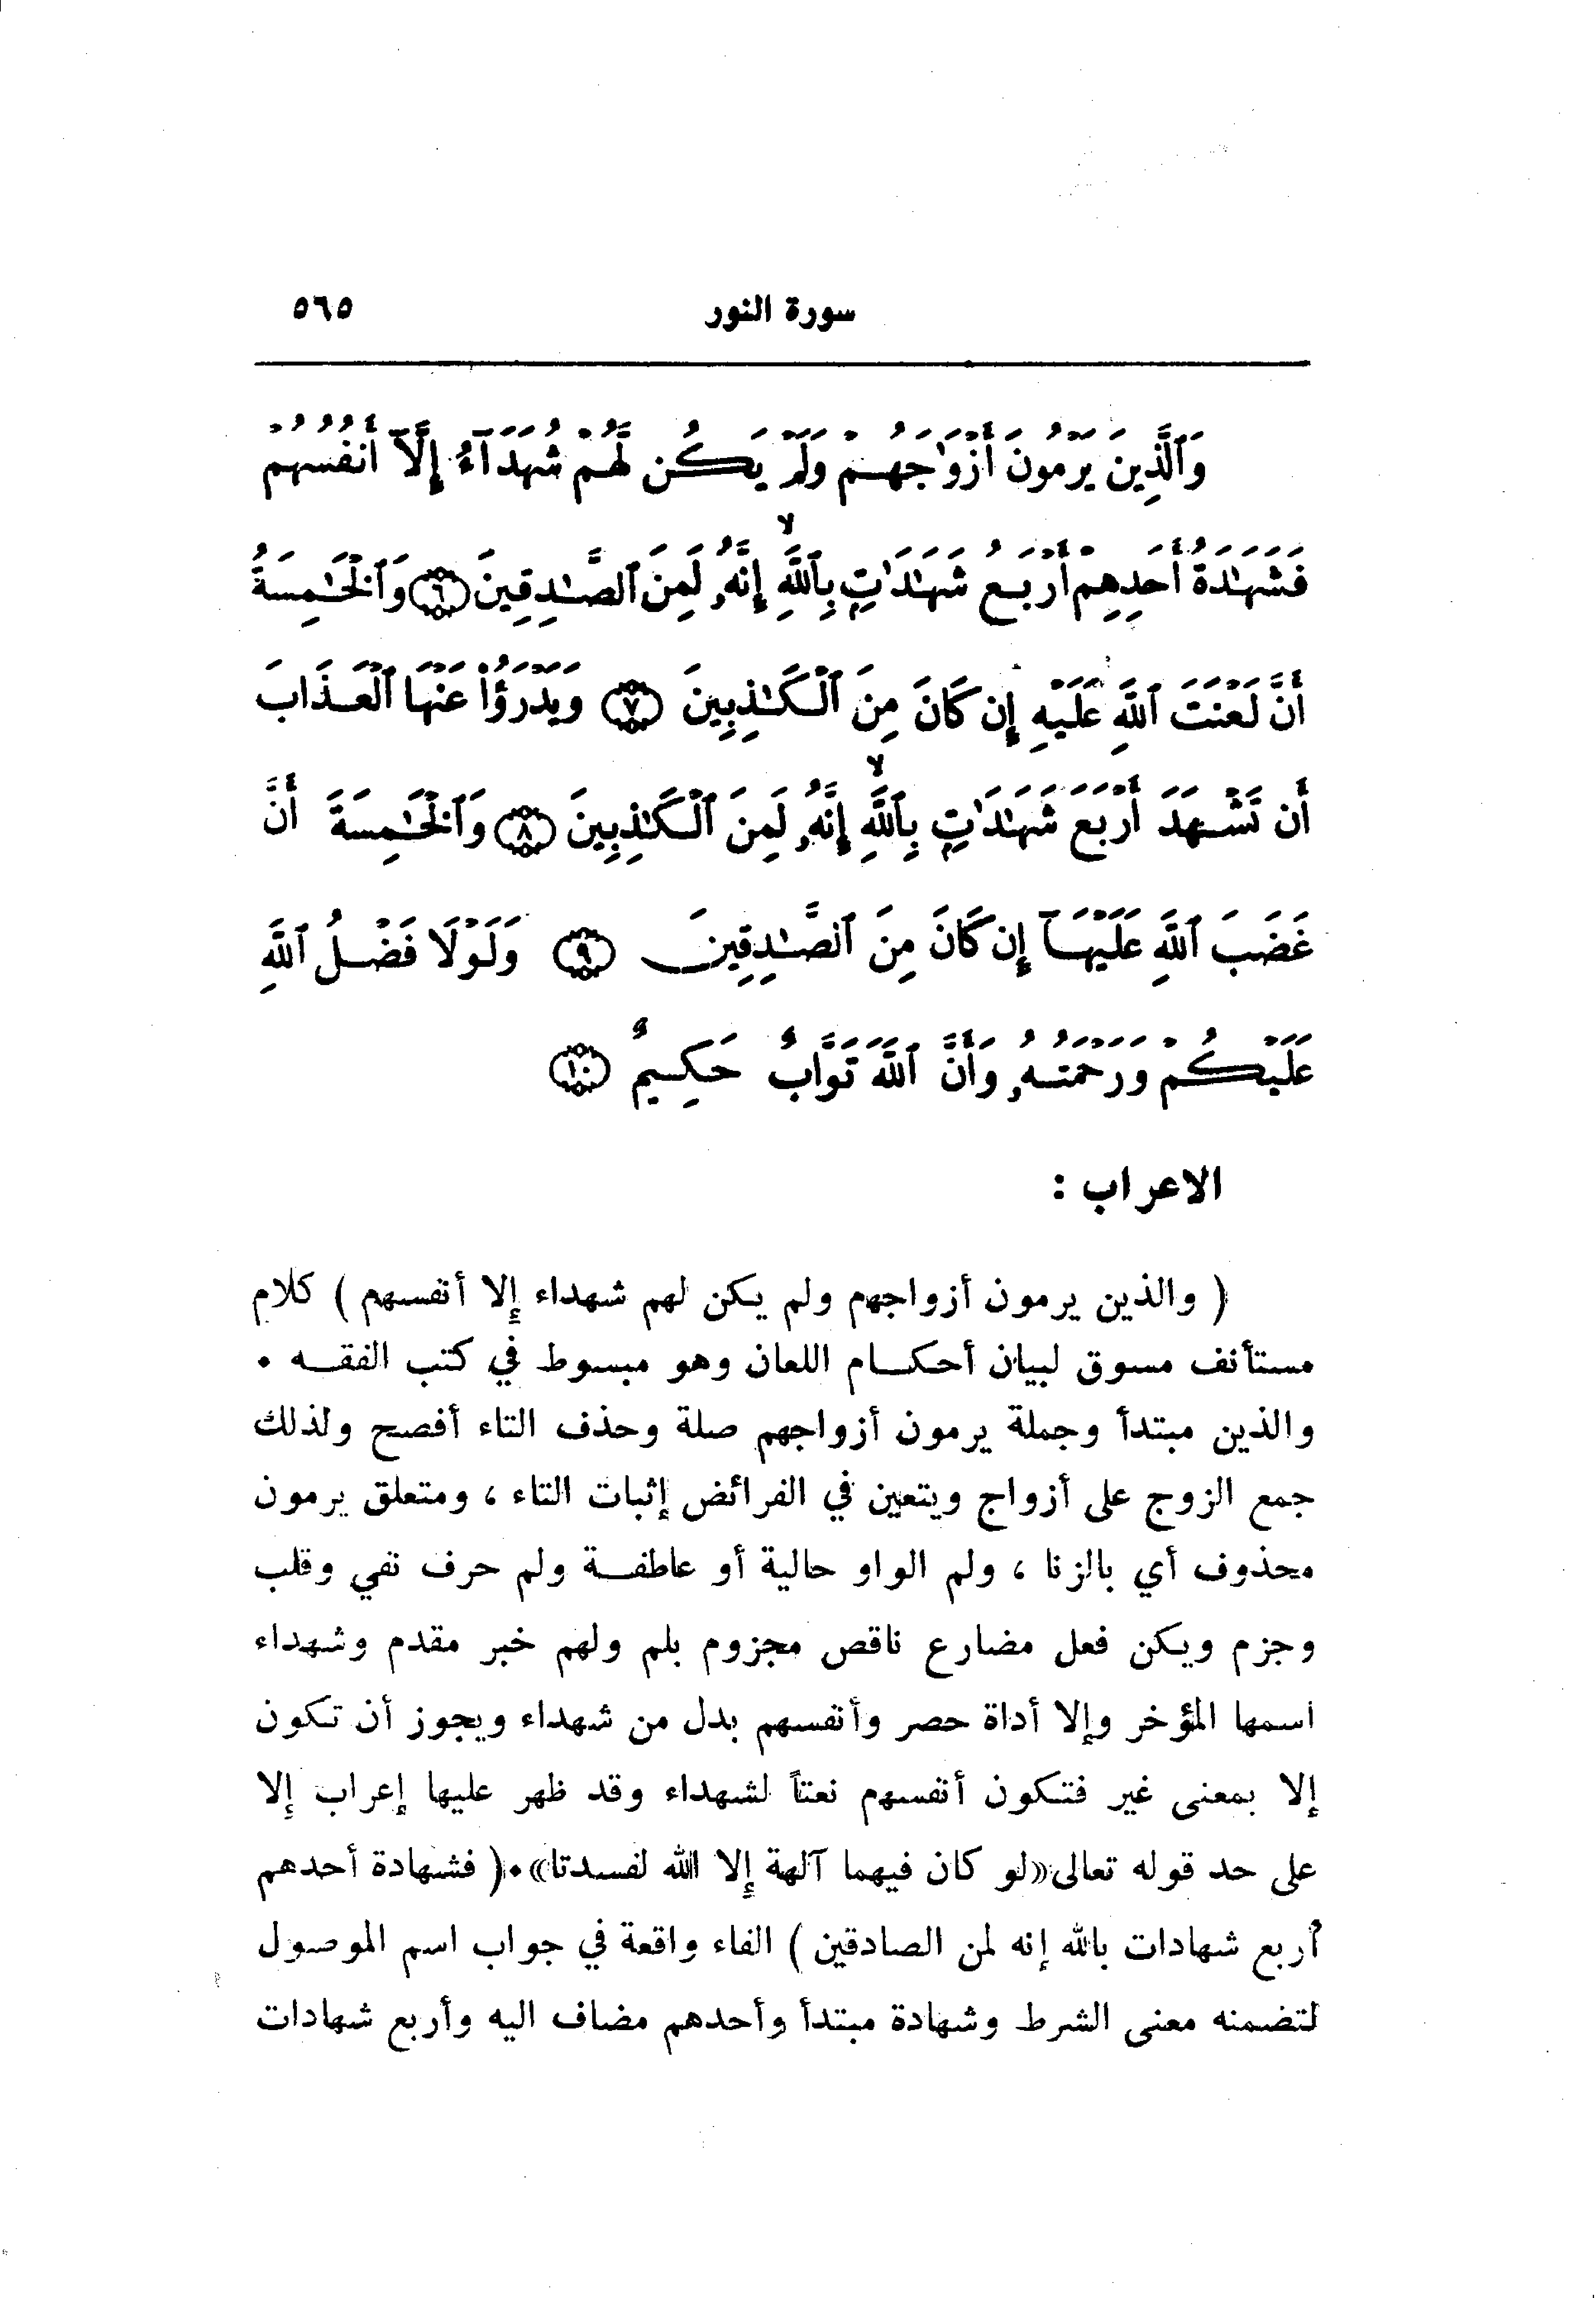 سورة النور ٥٦٥
وَٱلَّذِينَ يَرْمُونَ أَزْوَٰجَهُمْ وَلَمْ يَكُن لَّهُمْ شُهَدَآءُ إِلَّآ أَنفُسُهُمْ
فَشَهَٰدَةُ أَحَدِهِمْ أَرْبَعُ شَهَٰدَٰتٍۭ بِٱللَّهِ ۙ إِنَّهُۥ لَمِنَ ٱلصَّٰدِقِينَ ٦ وَٱلْخَٰمِسَةُ
أَنَّ لَعْنَتَ ٱللَّهِ عَلَيْهِ إِن كَانَ مِنَ ٱلْكَٰذِبِينَ ٧ وَيَدْرَؤُا۟ عَنْهَا ٱلْعَذَابَ
أَن تَشْهَدَ أَرْبَعَ شَهَٰدَٰتٍۭ بِٱللَّهِ ۙ إِنَّهُۥ لَمِنَ ٱلْكَٰذِبِينَ ٨ وَٱلْخَٰمِسَةَ أَنَّ
غَضَبَ ٱللَّهِ عَلَيْهَآ إِن كَانَ مِنَ ٱلصَّٰدِقِينَ ٩ وَلَوْلَا فَضْلُ ٱللَّهِ
عَلَيْكُمْ وَرَحْمَتُهُۥ وَأَنَّ ٱللَّهَ تَوَّابٌ حَكِيمٌ ١٠
الاعراب :
( والذين يرمون أزواجهم ولم يكن لهم شهداء إلا أنفسهم ) كلام
مستأنف مسوق لبيان أحكام اللعان وهو مبسوط في كتب الفقه .
والذين مبتدأ وجملة يرمون أزواجهم صلة وحذف التاء أفصح ولذلك
جمع الزوج على أزواج ويتعين في الفرائض إثبات التاء ، ومتعلق يرمون
محذوف أي بالزنا ، ولم الواو حالية أو عاطفة ولم حرف نفي وقلب
وجزم ويكن فعل مضارع ناقص مجزوم بلم ولهم خبر مقدم وشهداء
اسمها المؤخر وإلا أداة حصر وأنفسهم بدل من شهداء ويجوز أن تكون
إلا بمعنى غير فتكون أنفسهم نعتاً لشهداء وقد ظهر عليها إعراب إلا
على حد قوله تعالى «لو كان فيهما آلهة إلا الله لفسدتا» . ( فشهادة أحدهم
أربع شهادات بالله إنه لمن الصادقين ) الفاء واقعة في جواب اسم الموصول
لتضمنه معنى الشرط وشهادة مبتدأ وأحدهم مضاف اليه وأربع شهادات